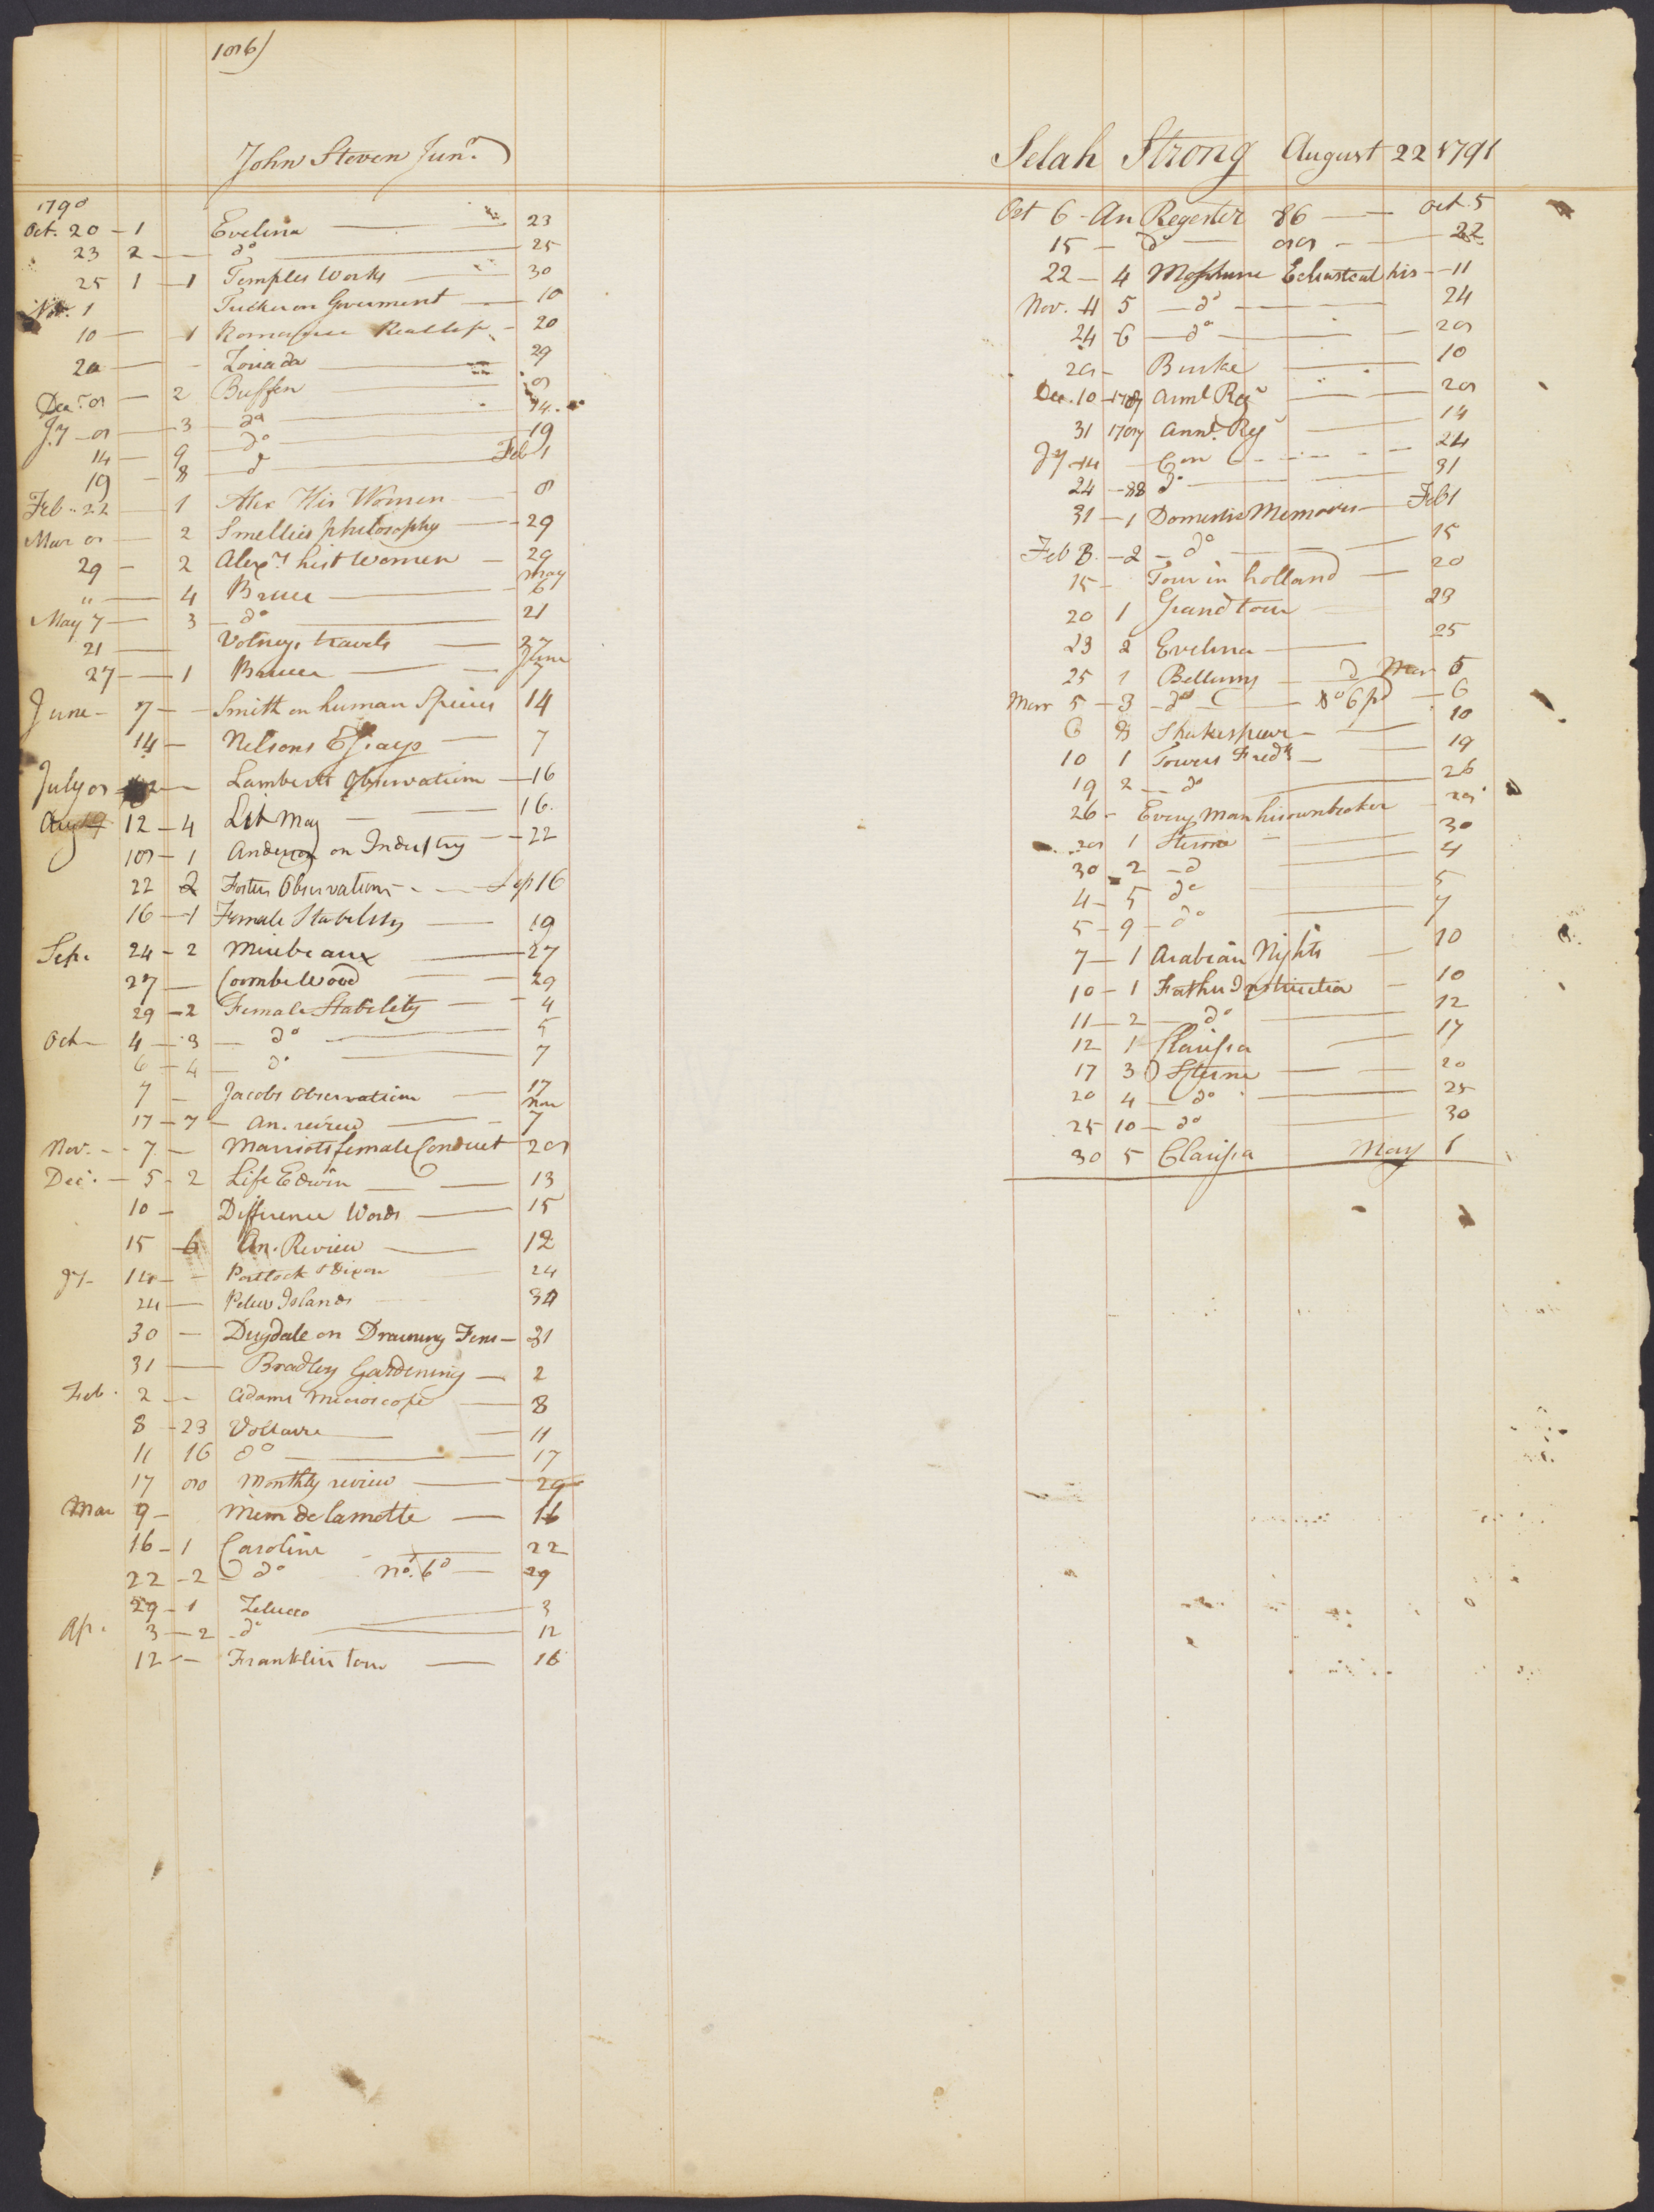 186)
John Steven Junr.
1790
Oct. 20 - 1 Evelina 23
23 2 do 25
25 1 - 1 Temples Works 30
Nov. 1 Tucker on Goverment 10
10 - 1 Romance Real life - 20
20 - Zoriada 29
Decr. 8 - 2 Buffon 8
Jy - 8 - 3 do 14
14 - 9 do 19
19 - 8 d Feb 1
Feb. 22 - 1 Alex His Women 8
Mar 8 - 2 Smellies philosophy 29
29 - 2 Alexr. hist Women - 29
" - 4 Bruce - May 6
May 7 - 3 - do 21
21 - Volneys travels 27
27 - 1 Bruce - June 7
June - 7 - Smith on human Species 14
14 - Nelsons Essays 7
July 8 - Lamberts Observation - 16
Aug 12 - 4 Lit Mag 16.
18 - 1 Anderson on Industry - 22
22 2 Fosters Observations - Sep 16
16 - 1 Female Stability 19
Sep. 24 - 2 Mirebaux 27
27 - Coombe Wood 29
29 - 2 Female Stability 4
Oct - 4 - 3 - do 5
6 - 4 - do 7
7 - Jacobs Observation 17
17 - 7 - An. review - Nov 7
Nov. - 7 - Marriots female Conduct 28
Decr. - 5 - 2 Life Edwin 13
10 - Difference Words 15
15 - 6 An. Review 12
Jy - 18 - Portlock & Dixon 24
24 - Pelew Islands 30
30 - Dugdale on Draining Fens - 31
31 - Bradley Gardening - 2
Feb. 2 - Adams Microscope 8
8 - 23 Voltaire 11
11 16 do 17
17 80 Monthly review 29
Mar 9 - Mem de la motte - 16
16 - 1 Caroline 22
22 - 2 - do No. 6d - 29
29 - 1 Zeluco 3
Ap. 3 - 2 - do 12
12 - Franklin tour 16
Selah Strong August 22 1791
Oct 6 - An Regester 86 - Oct. 5
15 - do 88 - 22
22 - 4 Moshiem Eclasteal his - 11
Nov. 4 5 - do 24
24 - 6 - do 28
28 - Burke 10
Dec. 10 - 1787 Annl Regr 28
31 1787 Annl. Regr 14
Jy - 14 24
24 - 88 do 31
31 - 1 Domestic Memoirs - Feb 1
Feb 8. - 2 - do 15
15 - Tour in holland 20
20 1 Grand tour 23
23 2 Evelina 25
25 1 Bellamy d Mar 5
Marr 5 - 3 - do No 6 pd - 6
6 8 Shakespear - 10
10 1 Towers Fredk - 19
19 2 - do 26
26 - Every Man his own broker 28
28 1 Sterne 30
30 2 - d 4
4 - 5 do 5
5 - 9 - do 7
7 - 1 Arabian Nights 10
10 - 1 Father Instruction - 10
11 - 2 - do 12
12 1 Clarissa 17
17 3 Sterne 20
20 4 - do 25
25 10 - do 30
30 5 Clarissa May 1